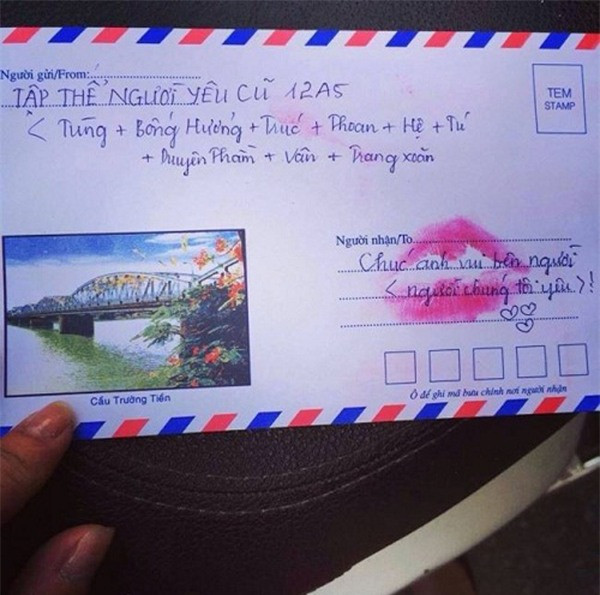 Người gửi/From:
TẬP THỂ NGƯỜI YÊU CŨ 12A5
< Tùng + Bông Hương + Trúc + Thoan + Hệ + Tú
+ Duyên Phạm + Vân + Trang xoăn
TEM
STAMP
Cầu Trường Tiền
Người nhận/To
Chúc anh vui bên người
< người chúng tôi yêu >!
Ô để ghi mã bưu chính nơi người nhận